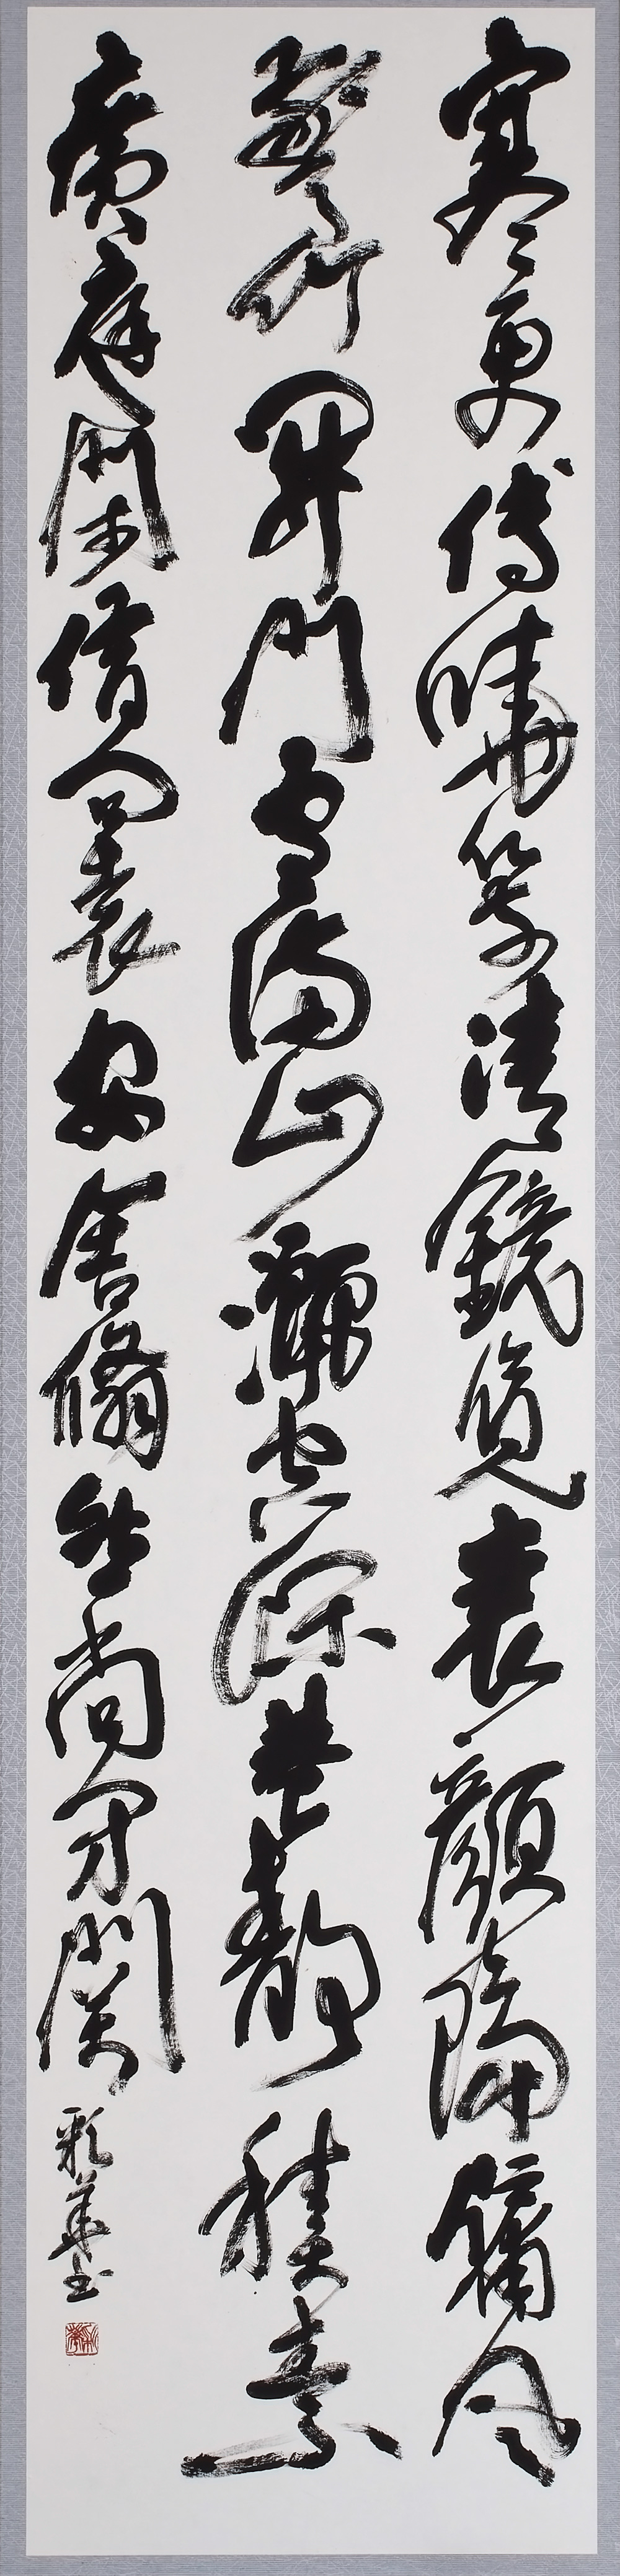 寒更傳曉箭清鏡覽衰顏隔牖風
驚竹開門雪滿山灑空深巷靜積素
廣庭閑借問袁安舍翛然尚閉關
彩華書